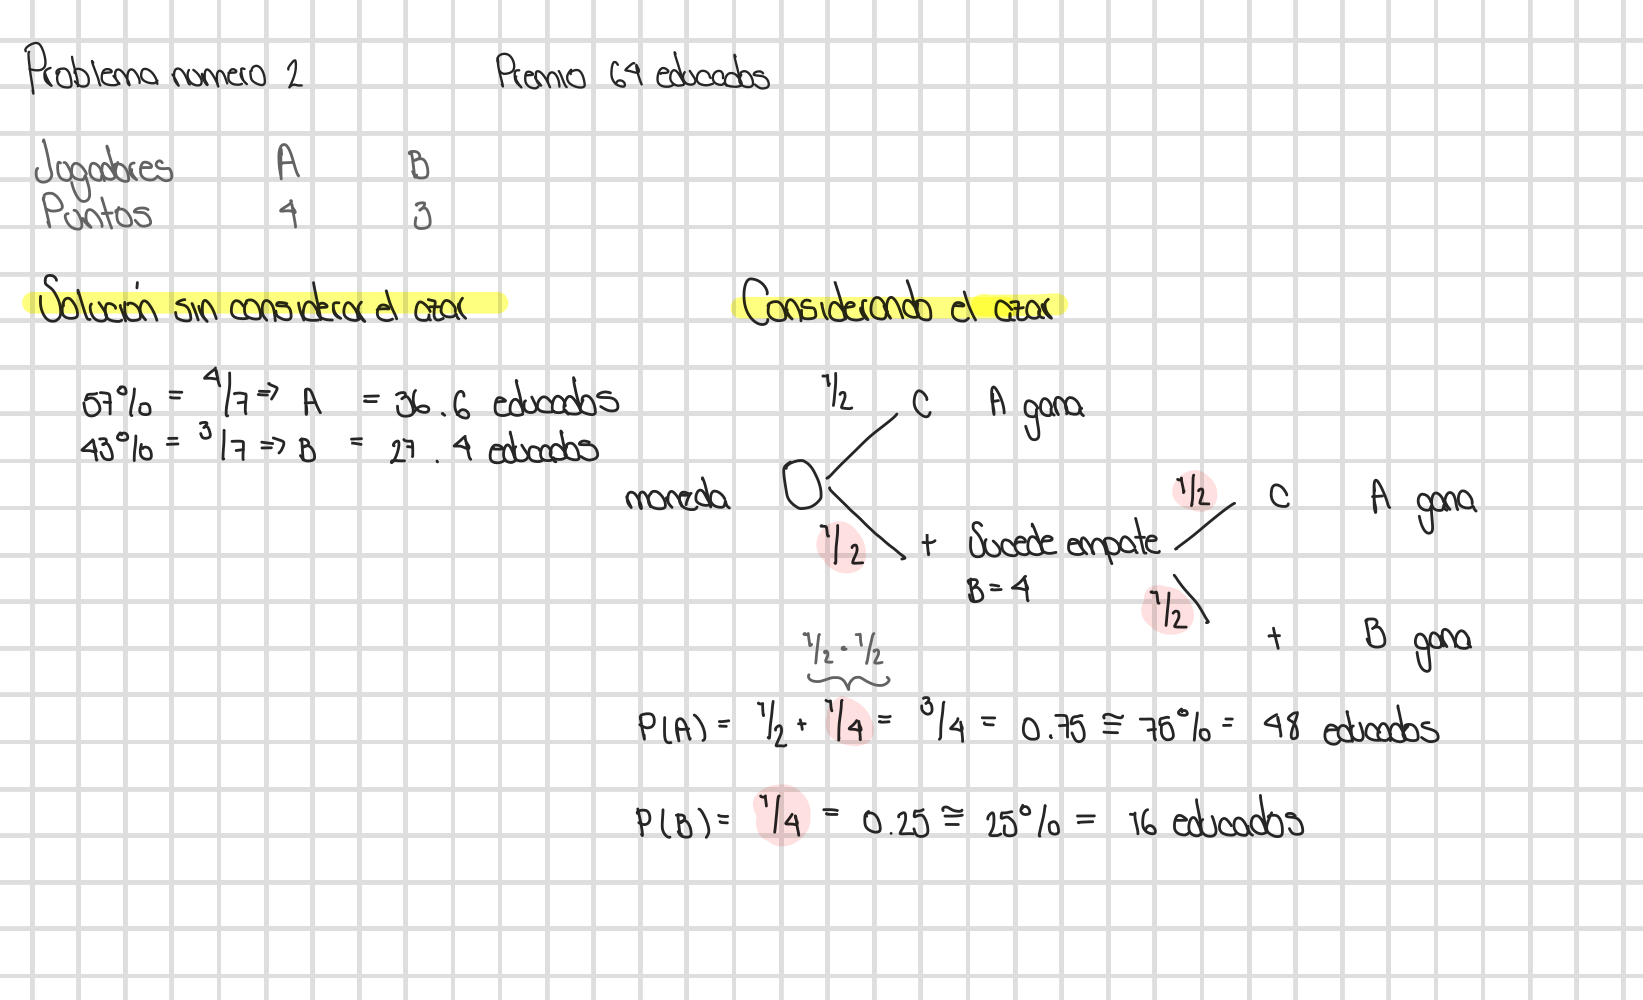 Problema numero 2
Premio 64 educados
Jugadores A B
Puntos 4 3
Solución sin considerar el azar
57% = 4/7 => A = 36.6 educados
43% = 3/7 => B = 27.4 educados
Considerando el azar
1/2 C A gana
moneda
1/2 + Sucede empate
B = 4
1/2 C A gana
1/2 + B gana
1/2 · 1/2
P(A) = 1/2 + 1/4 = 3/4 = 0.75 ≅ 75% = 48 educados
P(B) = 1/4 = 0.25 ≅ 25% = 16 educados